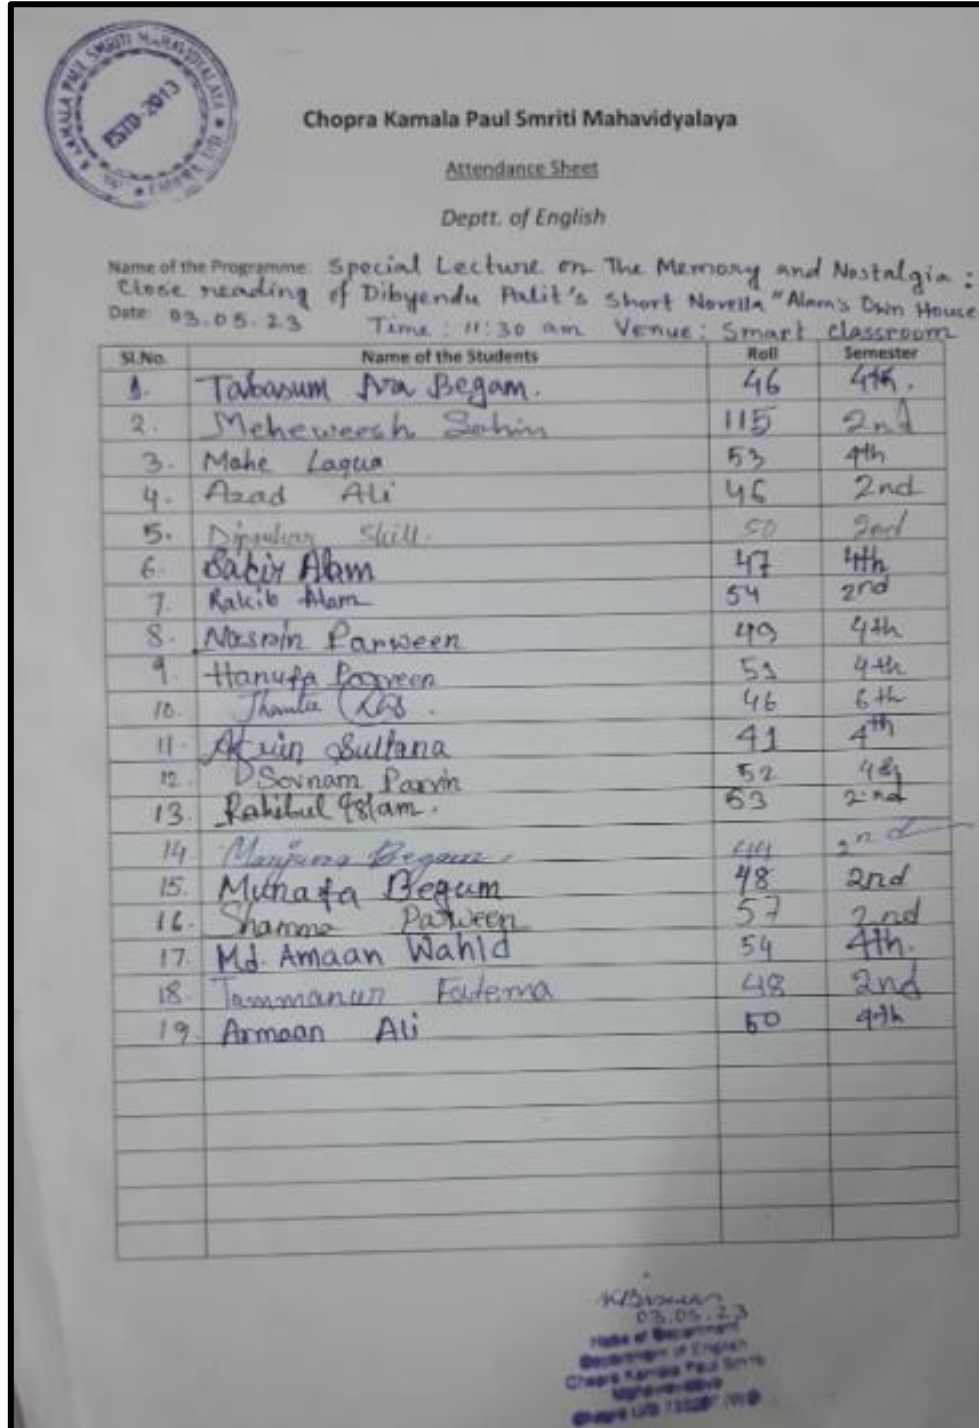 KAMALA PAUL SMRITI MAHAVIDYALAYA
ESTD-2013
Chopra Kamala Paul Smriti Mahavidyalaya
Attendance Sheet
Deptt. of English
Name of the Programme: Special Lecture on The Memory and Nostalgia :
Close reading of Dibyendu Palit's Short Novella "Alam's Own House
Date: 03.05.23 Time : 11:30 am Venue : Smart classroom
Sl.No. Name of the Students Roll Semester
1. Tabasum Ara Begam. 46 4th.
2. Meheweesh Sahin 115 2nd
3. Mahe Laqua 53 4th
4. Azad Ali 46 2nd
5. 50 2nd
6. Sabir Alam 47 4th
7. Rakib Alam 54 2nd
8. Nasrin Parween 49 4th
9. Hanufa Parveen 51 4th
10. 46 6th
11. Sultana 41 4th
12. Sovnam Parvin 52 4th
13. Rahibul Islam. 53 2nd
14 Begam 44 2nd
15. Munafa Begum 48 2nd
16. Shamma Parween 57 2nd
17. Md. Amaan Wahid 54 4th.
18. Tammanun Fatema 48 2nd
19. Armaan Ali 50 4th
03.05.23
Department of English
Chopra Kamala Paul Smriti
Mahavidyalaya